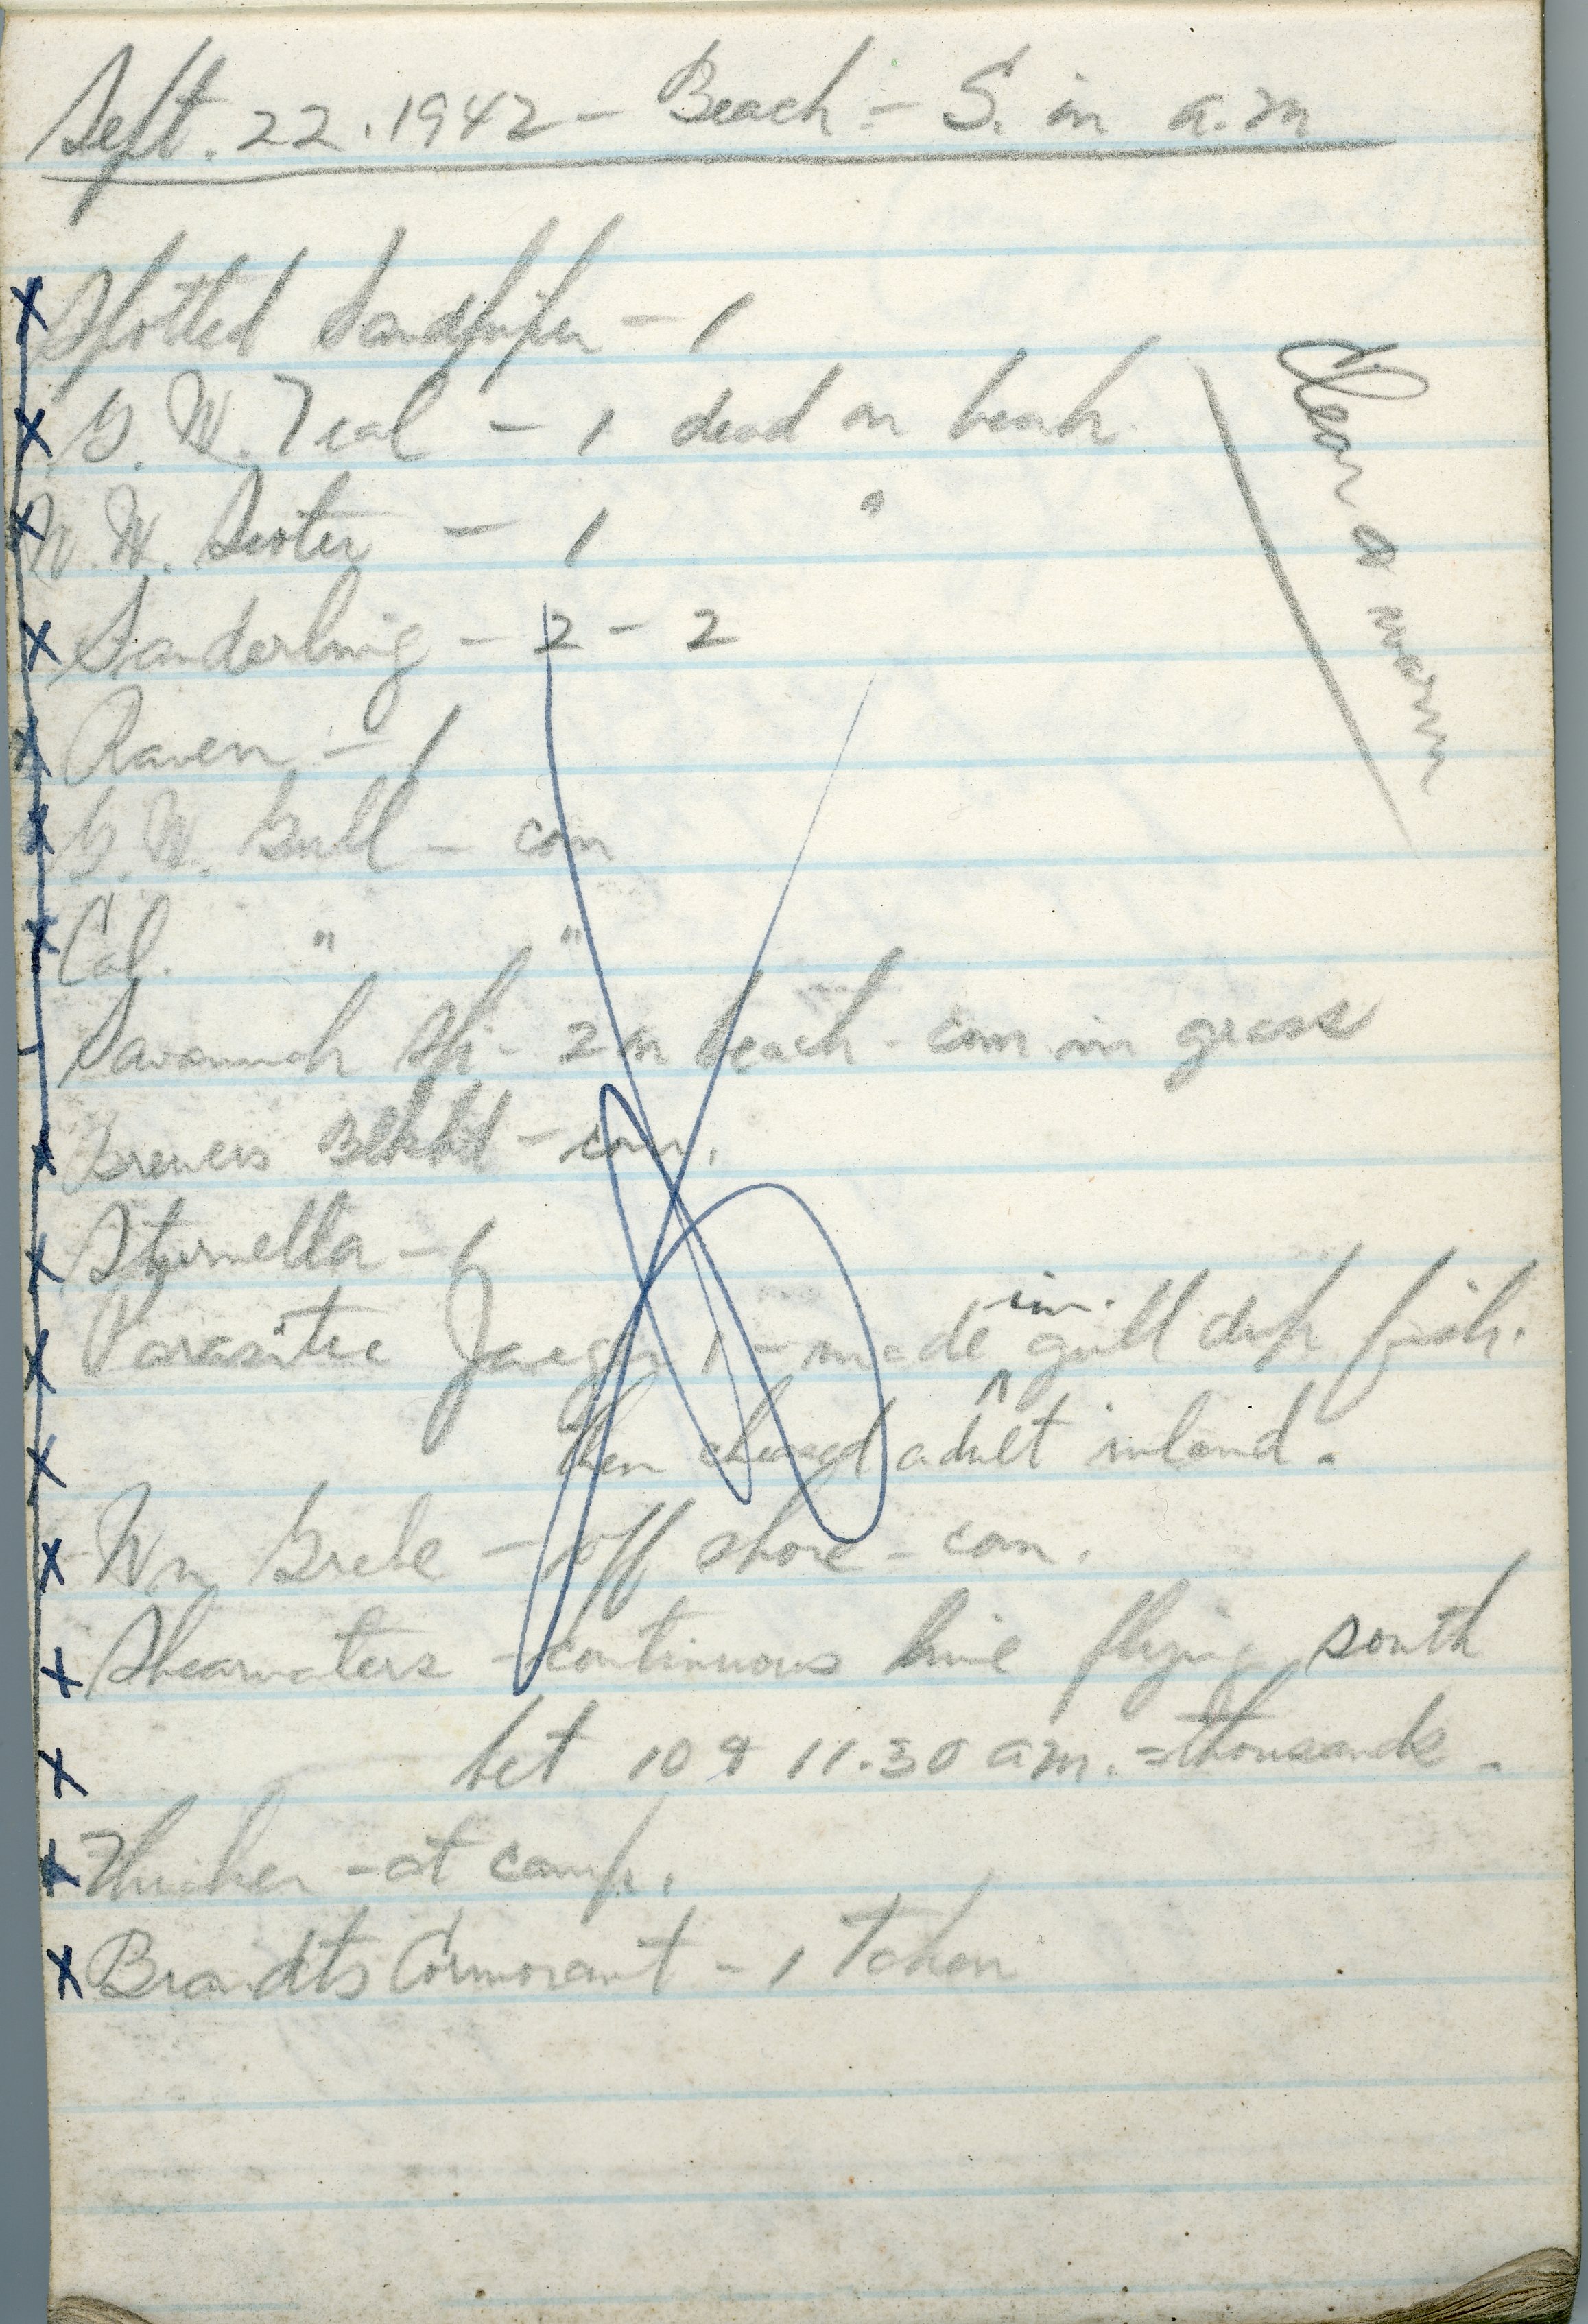 Sept. 22. 1942 - Beach - S. in a.m
Spotted Sandpiper - 1
G. W. Teal - 1 dead on beach
W. W. Scoter - 1 "
Sanderling - 2 - 2
Raven - 1
G. W. Gull - com
Cal. " "
Savannah Sp. - 2 on beach - com in grass
Brewers Blkbd - com.
Sturnella - 1
Parasitic Jaeger 1 - made im. gull drop fish.
then chased adult inland.
Wn Grebe - off shore - com.
Shearwaters - continuous line flying south
bet 10 & 11.30 am. = thousands -
Flicker - at camp.
Brandts Cormorant - 1 taken
Clear & warm